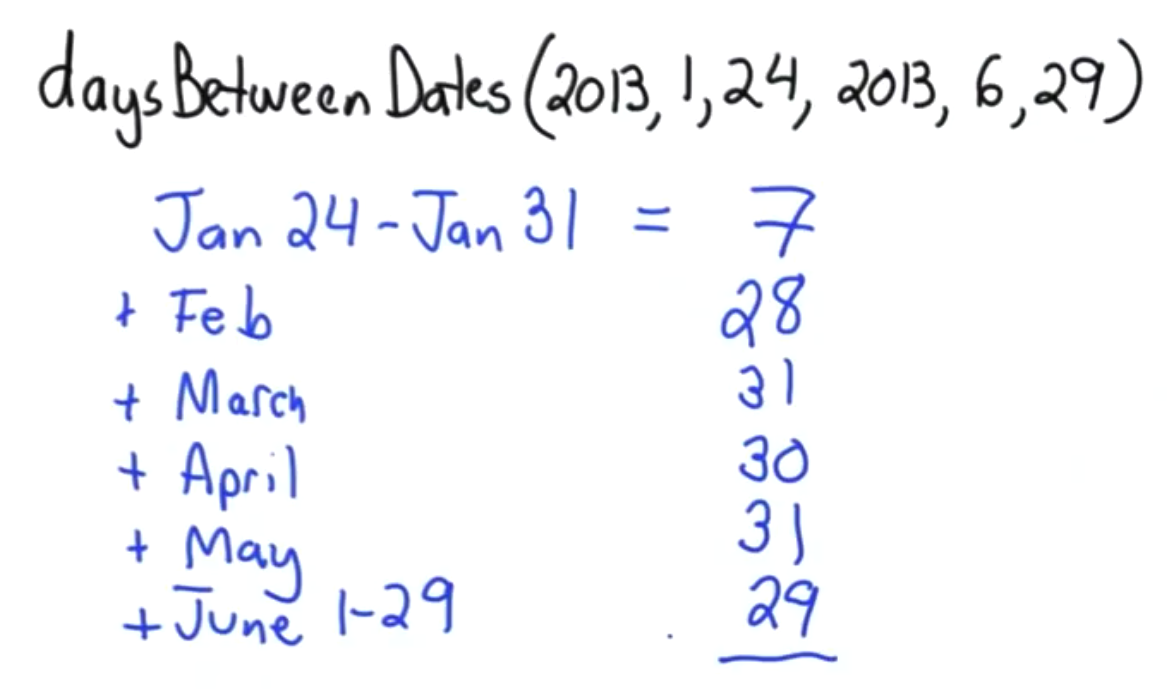 daysBetweenDates(2013, 1, 24, 2013, 6, 29)
Jan 24 - Jan 31 = 7
+ Feb 28
+ March 31
+ April 30
+ May 31
+ June 1-29 29